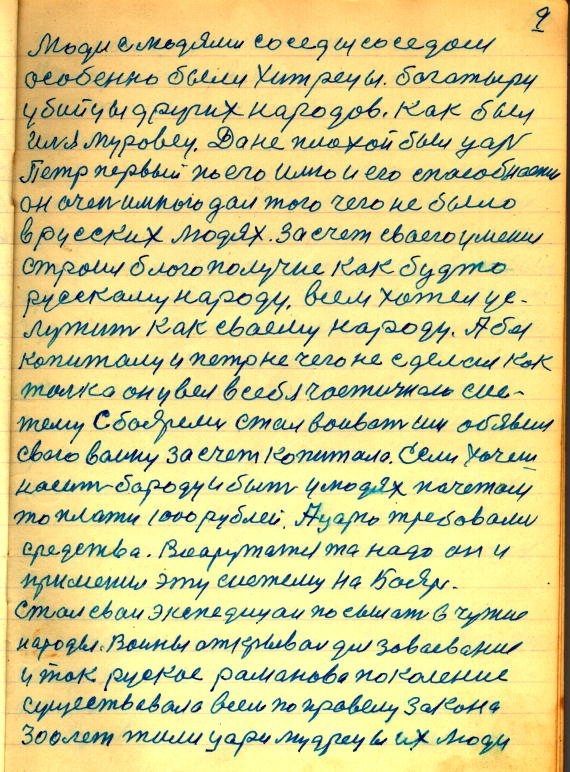 9
Люди с людями соседы соседом
особенно были хитрецы. богатыри
убийцы других народов. Как был
Илья Муровец. Да не плохой был царь
Петр первый по его имю и его способности
он очень много дал того чего не было
в русских людях. За счет своего умения
строил благополучие как будто
рускому народу, всем хотел ус-
лужить как своему народу. А бы
копиталу и петр не чего не сделал как
толка он увел в себя частичною сис-
тему С боярами стал воивать им обявил
свою воину за счет копитала. Если хочеш
насить бароду и быть у людях почетом
то плати 1000 рублей. А царю требовали
средства. Вооружатся та надо он и
применил эту систему на Бояр.
Стал свои экспедиции посылать в чужие
народы. Воины открывал для завоевание
и так руское раманова поколение
существовала всем по правелу закона
300 лет жили цари мудрецы их люди